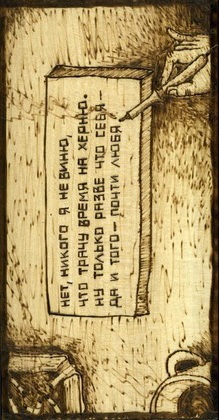 НЕТ, НИКОГО Я НЕ ВИНЮ,
ЧТО ТРАЧУ ВРЕМЯ НА ХЕРНЮ.
НУ ТОЛЬКО РАЗВЕ ЧТО СЕБЯ—
ДА И ТОГО— ПОЧТИ ЛЮБЯ